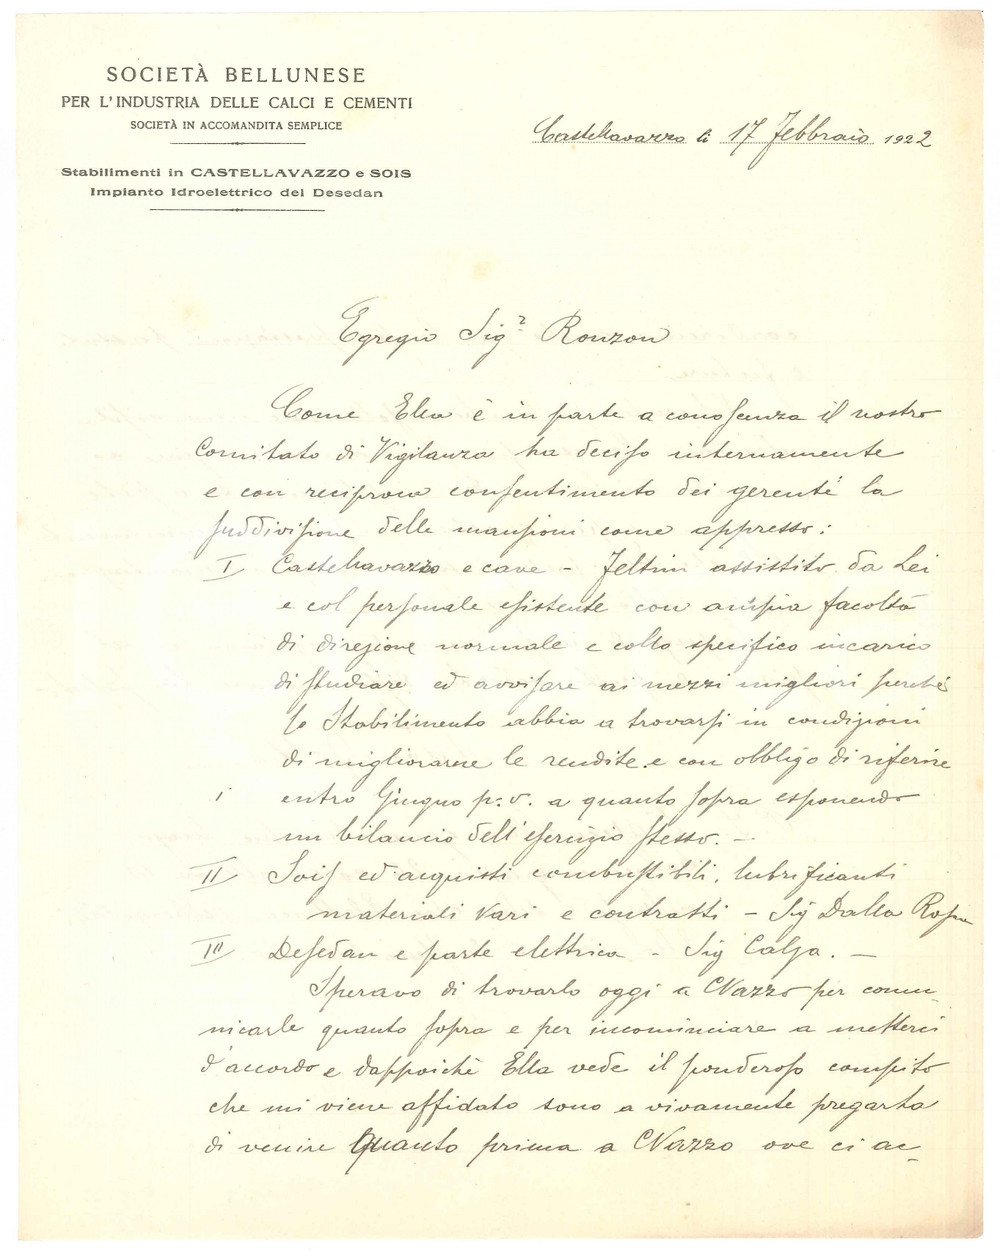 SOCIETÀ BELLUNESE
PER L'INDUSTRIA DELLE CALCI E CEMENTI
SOCIETÀ IN ACCOMANDITA SEMPLICE
Stabilimenti in CASTELLAVAZZO e SOIS
Impianto Idroelettrico del Desedan
Castellavazzo li 17 Febbraio 1922
Egregio Sigr Ronzon
Come Ella è in parte a conoscenza il nostro
Comitato di Vigilanza ha deciso internamente
e con reciproco consentimento dei gerenti la
suddivisione delle mansioni come appresso:
I Castellavazzo e cave - Feltrin assistito da Lei
e col personale esistente con ampia facoltà
di direzione normale e collo specifico incarico
di studiare ed avvisare ai mezzi migliori perchè
lo Stabilimento abbia a trovarsi in condizioni
di migliorare le rendite e con obbligo di riferire
entro Giugno p.v. a quanto sopra esponendo
un bilancio dell'esercizio stesso. -
II Sois ed acquisti combustibili, lubrificanti
materiali vari e contratti - Sig Dalla Rosa
III Desedan e parte elettrica - Sig Calza. -
Speravo di trovarlo oggi a CVazzo per comu-
nicarle quanto sopra e per incominciare a metterci
d'accordo e dappoichè Ella vede il ponderoso compito
che mi viene affidato sono a vivamente pregarla
di venire quanto prima a CVazzo ove ci ac-